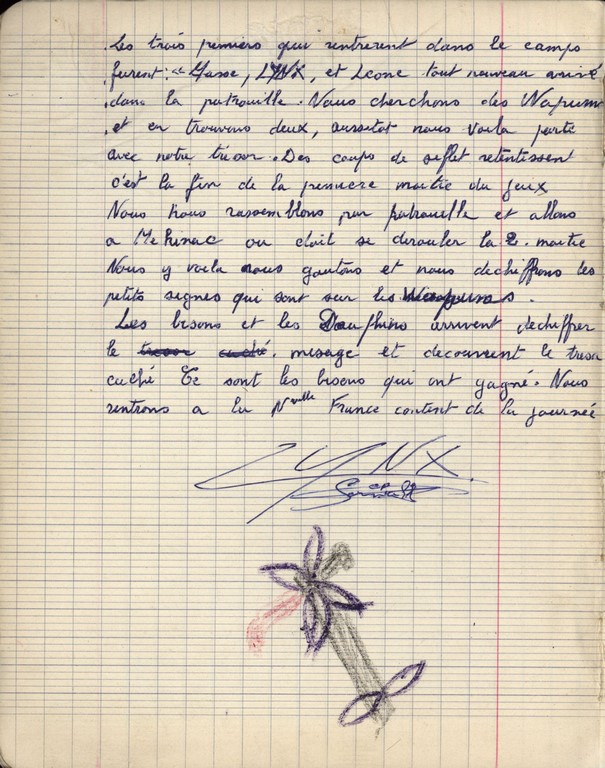 Les trois premiers qui rentrerent dans le camps
furent: " Masse, LYNX, et Leone tout nouveau arrivé
dans la patrouille. Nous cherchons des Wapum
et en trouvons deux, aussitot nous voila parti
avec notre tresor. Des coups de siflet retentissent
c'est la fin de la premiere moitie du jeux
Nous nous rassemblons par patrouille et allons
a ou etait se derouler la 2. moitie
Nous y voila nous goutons et nous dechiffrons les
petits signes qui sont sur les Wapums.
Les bisons et les Dauphins arrivent dechiffrer
le tresor caché. mesage et decouvrent le tresor
caché Ce sont les bisons qui ont gagné. Nous
rentrons a la Nvelle France content de la journée
LYNX.
CP